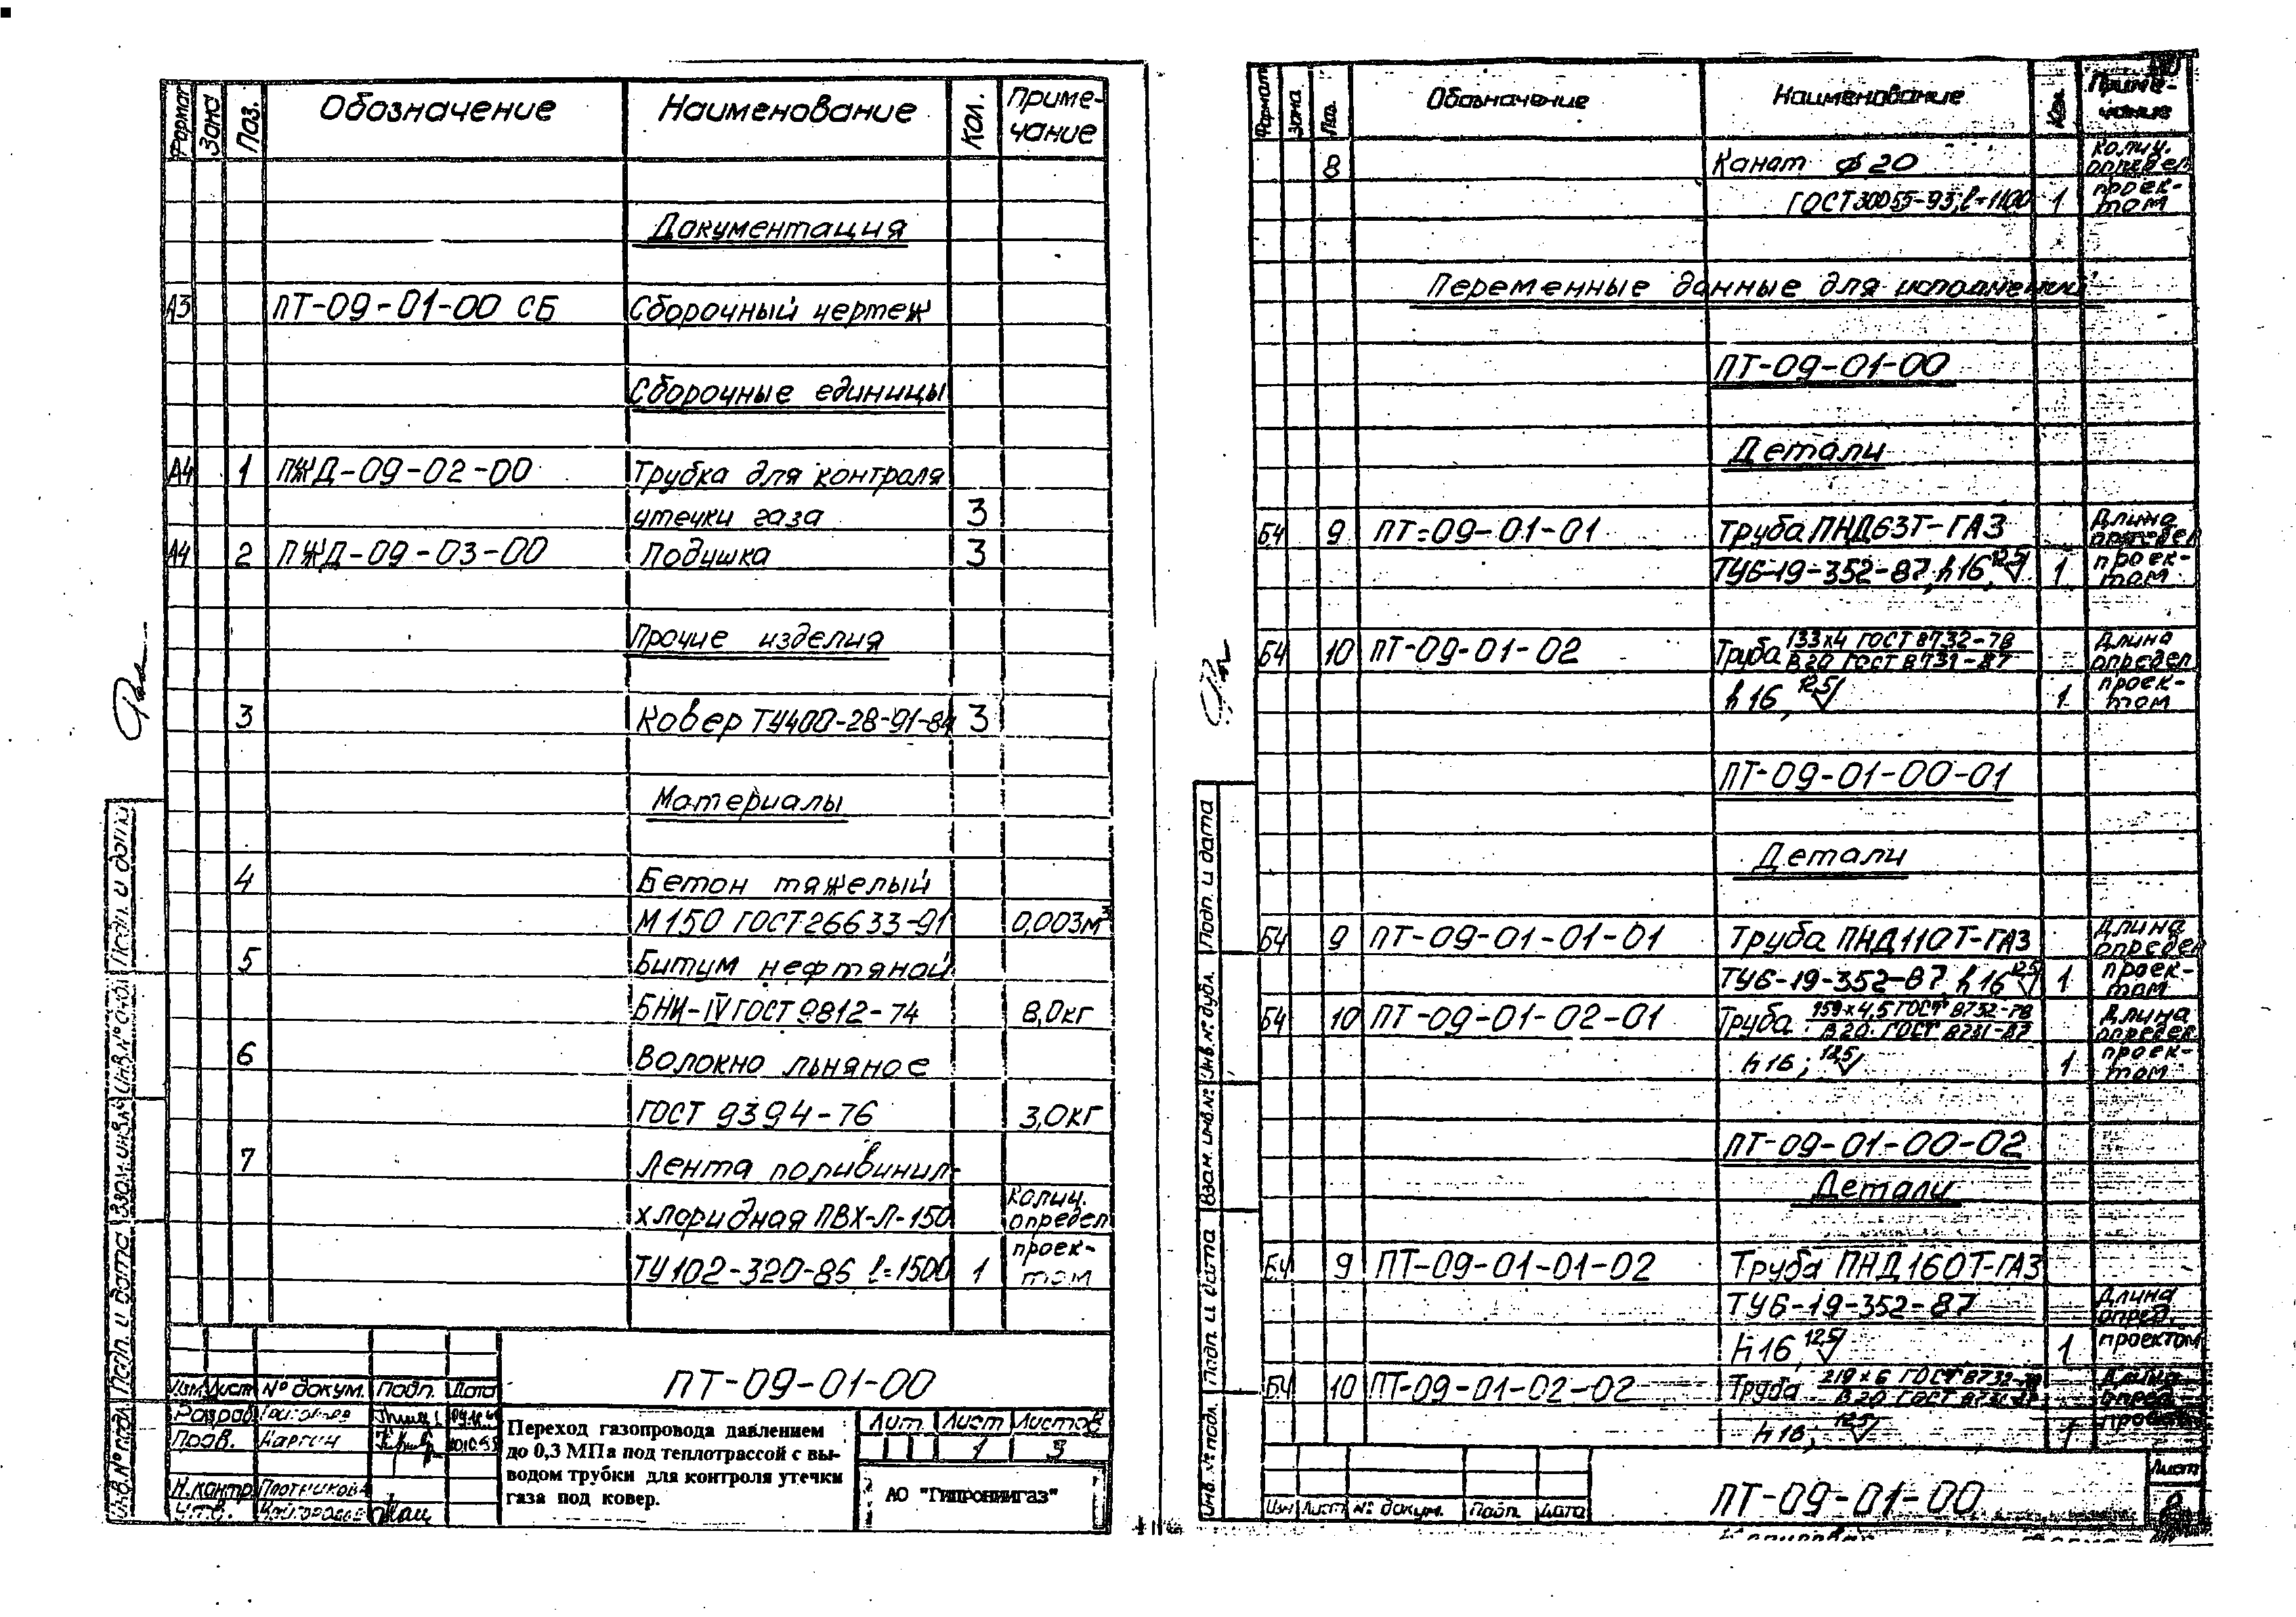 Формат Зона Поз. Обозначение Наименование Кол. Приме-
чание
Документация
А3 ПТ-09-01-00 СБ Сборочный чертеж
Сборочные единицы
А4 1 ПЖД-09-02-00 Трубка для контроля
утечки газа 3
А4 2 ПЖД-09-03-00 Подушка 3
Прочие изделия
3 Ковер ТУ400-28-91-84 3
Материалы
4 Бетон тяжелый
М150 ГОСТ26633-91 0,003м³
5 Битум нефтяной
БНИ-IV ГОСТ 9812-74 8,0кг
6 Волокно льняное
ГОСТ 9394-76 3,0кг
7 Лента поливинил-
хлоридная ПВХ-Л-150 Колич. определ
ТУ102-320-86 l=1500 1 проек-
том
Изм. Лист № докум. Подп. Дата
ПТ-09-01-00
Разраб.
Пров. Каргин
Н.контр. Плотникова
Утв.
Переход газопровода давлением
до 0,3 МПа под теплотрассой с вы-
водом трубки для контроля утечки
газа под ковер.
Лит. Лист Листов
1 3
АО "Гипрониигаз"
Инв.№ подл. Подп. и дата Взам.инв.№ Инв.№ дубл. Подп. и дата
Формат Зона Поз. Обозначение Наименование Кол. Приме-
чание
8 Канат ⌀20 Колич.
определ
ГОСТ30055-93; l=1100 1 проек-
том
Переменные данные для исполнений
ПТ-09-01-00
Детали
БЧ 9 ПТ-09-01-01 Труба ПНД63Т-ГАЗ Длина
определ
ТУ6-19-352-87, h16, 12,5 1 проек-
том
БЧ 10 ПТ-09-01-02 Труба 133х4 ГОСТ 8732-78 Длина
В20 ГОСТ 8731-87 определ
h16, 12,5 1 проек-
том
ПТ-09-01-00-01
Детали
БЧ 9 ПТ-09-01-01-01 Труба ПНД110Т-ГАЗ Длина
определ
ТУ6-19-352-87, h16 12,5 1 проек-
том
БЧ 10 ПТ-09-01-02-01 Труба 159х4,5 ГОСТ 8732-78 Длина
В20 ГОСТ 8731-87 определ
h16; 12,5 1 проек-
том
ПТ-09-01-00-02
Детали
БЧ 9 ПТ-09-01-01-02 Труба ПНД160Т-ГАЗ
ТУ6-19-352-87 Длина
опред.
h16, 12,5 1 проектом
БЧ 10 ПТ-09-01-02-02 Труба 219х6 ГОСТ 8732-78 Длина
В20 ГОСТ 8731-87 опред.
h16; 12,5 1
Изм Лист № докум. Подп. Дата
ПТ-09-01-00
Лист
2
Инв.№ подл. Подп. и дата Взам. инв.№ Инв.№ дубл. Подп. и дата